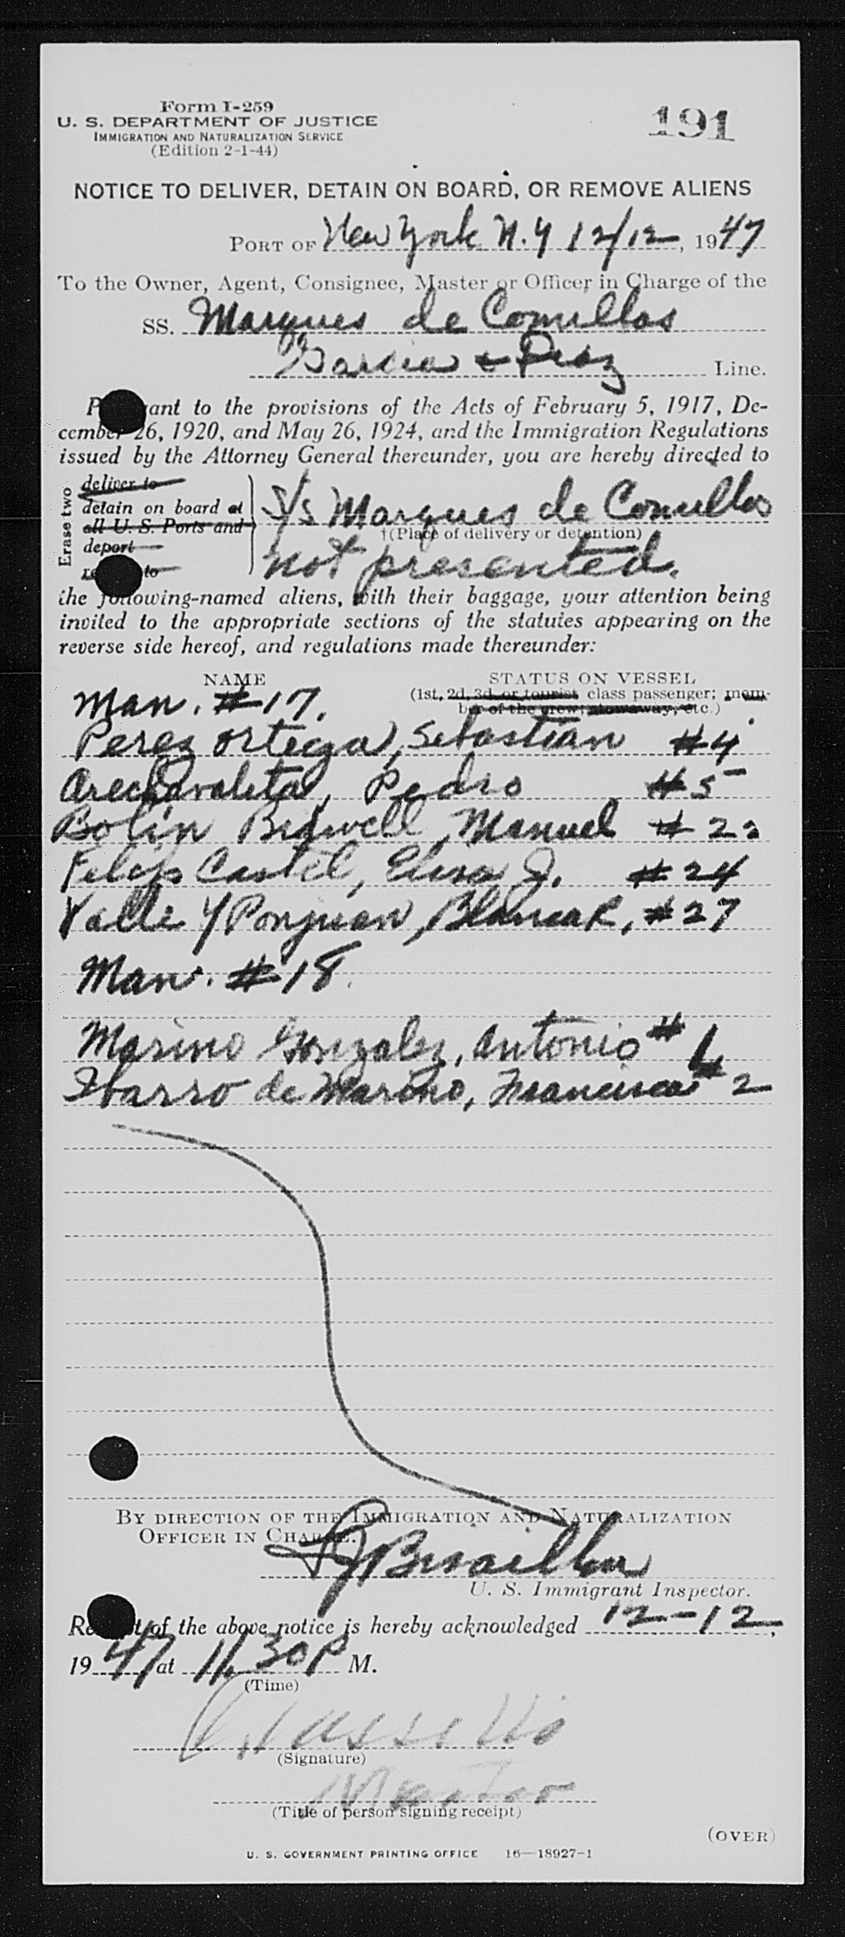 Form I-259
U. S. DEPARTMENT OF JUSTICE
IMMIGRATION AND NATURALIZATION SERVICE
(Edition 2-1-44)
191
NOTICE TO DELIVER, DETAIN ON BOARD, OR REMOVE ALIENS
PORT OF New York N.Y 12/12, 1947
To the Owner, Agent, Consignee, Master or Officer in Charge of the
SS. Marques de Comillas
Garcia & Diaz Line.
P ant to the provisions of the Acts of February 5, 1917, De-
cember 26, 1920, and May 26, 1924, and the Immigration Regulations
issued by the Attorney General thereunder, you are hereby directed to
Erase two
deliver to
detain on board at
all U. S. Ports and
deport
re to
S/S Marques de Comillas
†(Place of delivery or detention)
not presented.
the following-named aliens, with their baggage, your attention being
invited to the appropriate sections of the statutes appearing on the
reverse side hereof, and regulations made thereunder:
NAME STATUS ON VESSEL
(1st, 2d, 3d, or tourist class passenger; mem-
ber of the crew; stowaway, etc.)
Man. #17.
Perez Ortega, Sebastian #4
Arechavaleta, Pedro #5
Bolin Bidwell, Manuel #22
Castel, Elisa J. #24
Valle Y Ponjuan, Blanca R, #27
Man. #18.
Marino Gonzalez, Antonio #1
Ibarro de Marino, Francisca #2
BY DIRECTION OF THE IMMIGRATION AND NATURALIZATION
OFFICER IN CHARGE.
U. S. Immigrant Inspector.
Re t of the above notice is hereby acknowledged 12-12,
1947 at 11.30 P M.
(Time)
(Signature)
Master
(Title of person signing receipt)
(OVER)
U. S. GOVERNMENT PRINTING OFFICE 16—18927-1